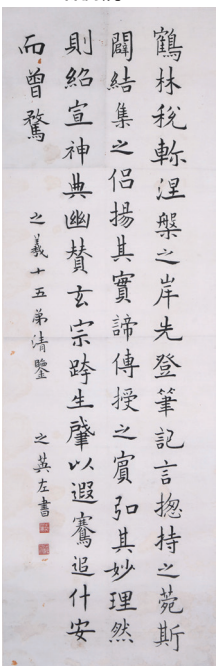 鶴林稅軫涅槃之岸先登筆記言揔持之菀斯
闢結集之侶揚其實諦傳授之賓弘其妙理然
則紹宣神典幽贊玄宗跨生肇以遐騫追什安
而曾騖
之義十五弟清鑒
之英左書